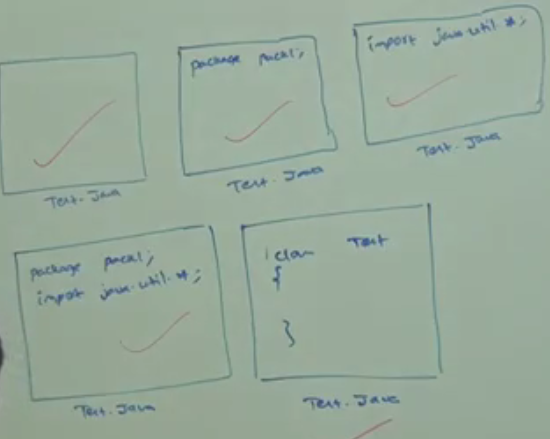 Test.Java
package pack1;
Test.Java
import java.util.*;
Test.Java
package pack1;
import java.util.*;
Test.Java
class Test
{
}
Test.Java